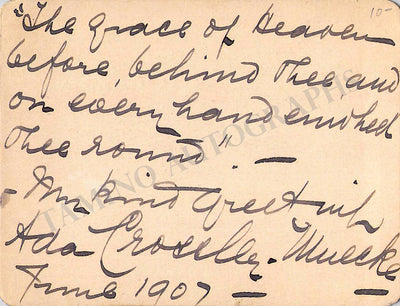 "The grace of Heaven
before, behind Thee, and
on every hand enwheel
Thee round". —
- In kind Greeting
Ada Crossley-Muecke
June 1907
10-
TAMINO AUTOGRAPHS